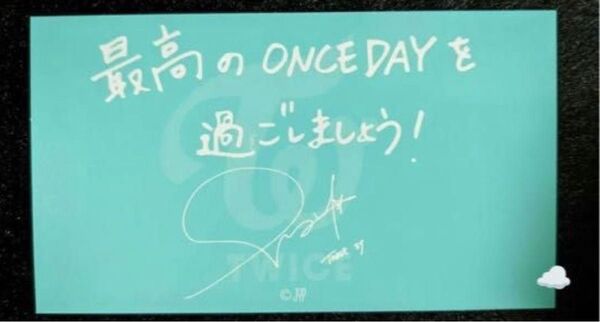 最高の ONCE DAY を
過ごしましょう!
TWICE
© JYP